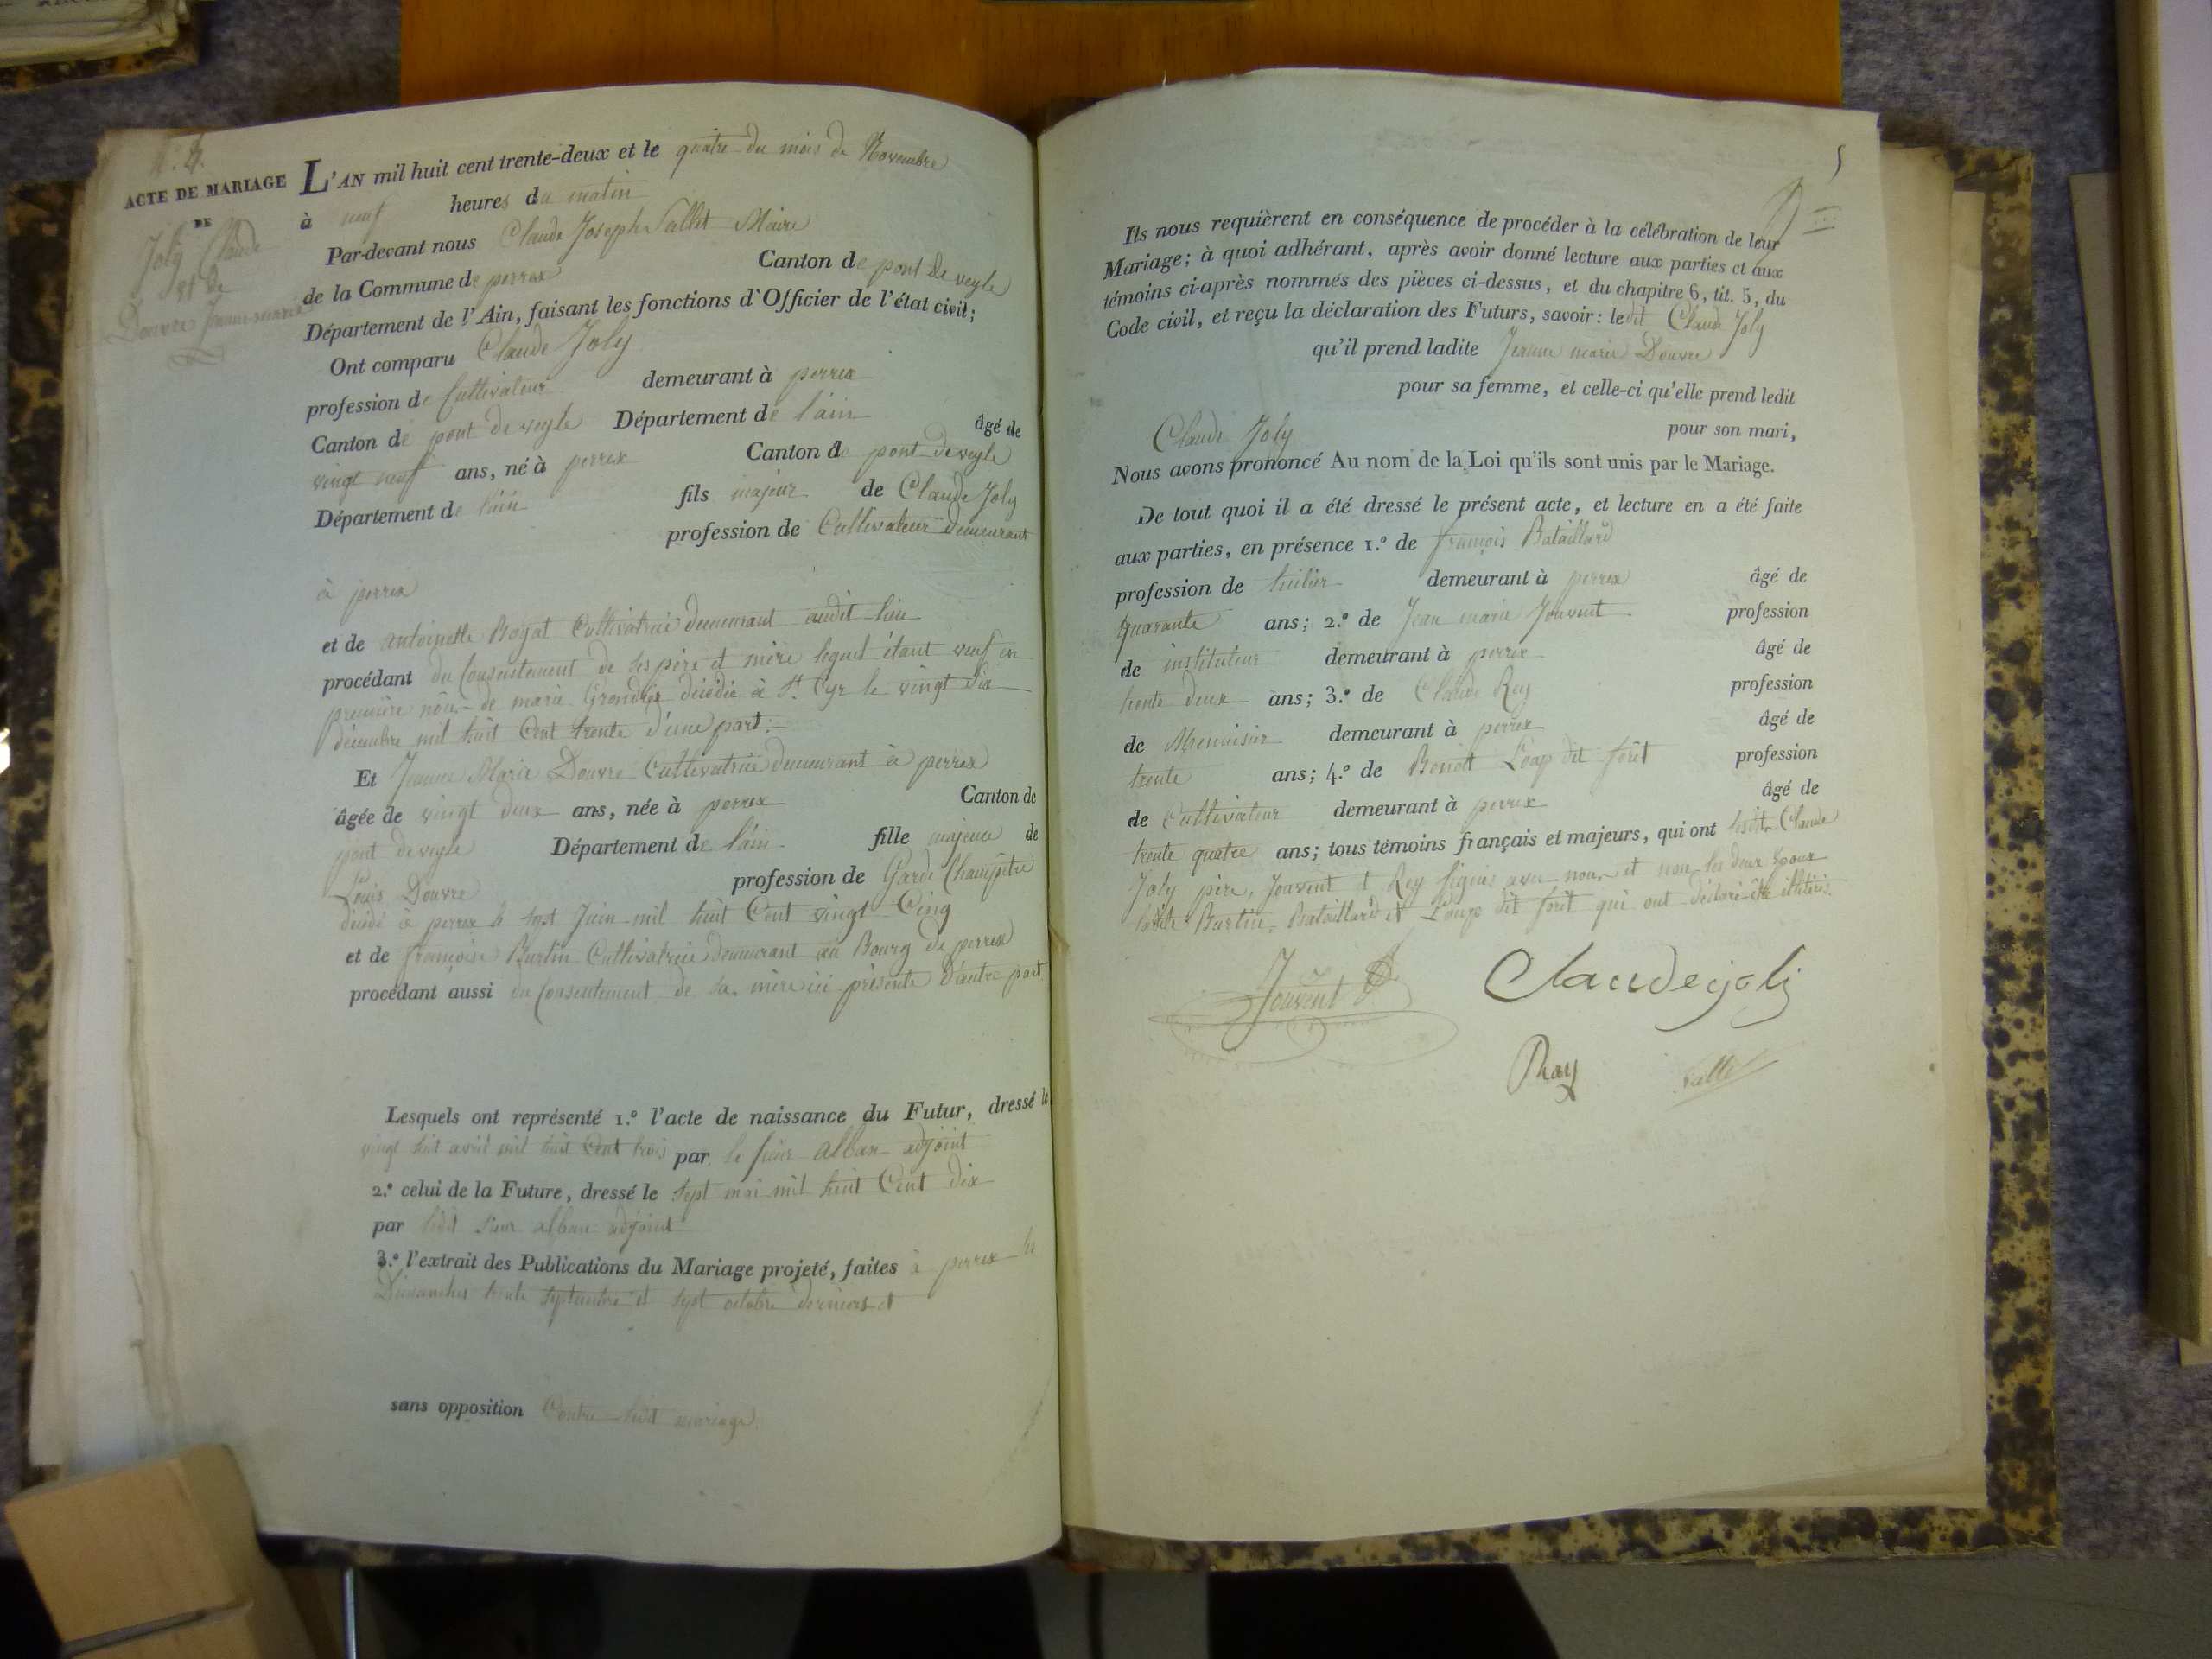 ACTE DE MARIAGE
DE
Joly Claude
et de
Douvre Jeanne marie
L'AN mil huit cent trente-deux et le quatre du mois de Novembre
à neuf heures du matin
Par-devant nous Claude Joseph Sallet Maire
de la Commune de perrex Canton de pont de veyle
Département de l'Ain, faisant les fonctions d'Officier de l'état civil;
Ont comparu Claude Joly
profession de Cultivateur demeurant à perrex
Canton de pont de veyle Département de l'ain âgé de
vingt neuf ans, né à perrex Canton de pont de veyle
Département de l'ain fils majeur de Claude Joly
profession de Cultivateur demeurant
à perrex
et de antoinette Boyat Cultivatrice demeurant audit lieu
procédant du Consentement de ses père et mère lequel étant veuf en
première nôce de marie décédée à St Cyr le vingt dix
décembre mil huit Cent trente d'une part:
Et Jeanne Marie Douvre Cultivatrice demeurant à perrex
âgée de vingt deux ans, née à perrex Canton de
pont de veyle Département de l'ain fille majeure de
Louis Douvre profession de Garde Champêtre
décédé à perrex le sept Juin mil huit Cent vingt Cinq
et de françoise Burtin Cultivatrice demeurant au Bourg de perrex
procédant aussi du Consentement de sa mère ici présente d'autre part
Lesquels ont représenté 1.º l'acte de naissance du Futur, dressé le
vingt huit avril mil huit Cent trois par le sieur alban adjoint
2.º celui de la Future, dressé le sept mai mil huit Cent dix
par ledit sieur alban adjoint
3.º l'extrait des Publications du Mariage projeté, faites à perrex les
Dimanches trente septembre et sept octobre derniers et
sans opposition Contre ledit mariage.
5
Ils nous requièrent en conséquence de procéder à la célébration de leur
Mariage; à quoi adhérant, après avoir donné lecture aux parties et aux
témoins ci-après nommés des pièces ci-dessus, et du chapitre 6, tit. 5, du
Code civil, et reçu la déclaration des Futurs, savoir: ledit Claude Joly
qu'il prend ladite Jeanne marie Douvre
pour sa femme, et celle-ci qu'elle prend ledit
Claude Joly pour son mari,
Nous avons prononcé Au nom de la Loi qu'ils sont unis par le Mariage.
De tout quoi il a été dressé le présent acte, et lecture en a été faite
aux parties, en présence 1.º de françois Bataillard
profession de huilier demeurant à perrex âgé de
quarante ans; 2.º de Jean marie Jouvent profession
de instituteur demeurant à perrex âgé de
trente deux ans; 3.º de Claude Rey profession
de Menuisier demeurant à perrex âgé de
trente ans; 4.º de Benoit Loup dit forêt profession
de Cultivateur demeurant à perrex âgé de
trente quatre ans; tous témoins français et majeurs, qui ont ledit Claude
Joly père, Jouvent et Rey signé avec nous et non les deux époux
ladite Burtin, Bataillard et Loup dit forêt qui ont déclaré être illitérés.
Jouvent
Claudejoly
Ray
Sallet